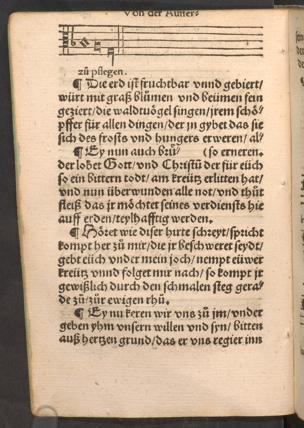 Von der Auffer⸗
zů pflegen.
¶ Die erd iſt fruchtbar vnnd gebiert/
würt mit graß blůmen vnd beümen fein
geziert/die waldtuögel ſingen/jrem ſchö⸗
pffer für allen dingen/der jn gybet das ſie
ſich des froſts vnd hungers erweren/ al⸗
¶ Ey nun auch brů⸗ (ſo erneren.
der lobet Gott/vnd Chriſtū der für eüch
ſo ein bittern todt/ am kreütz erlitten hat/
vnd nun überwunden alle not/vnd thüt
fleiß das jr möchtet ſeines verdienſts hie
auff erden/teylhafftig werden.
¶ Höret wie diſer hirte ſchreyt/ſpricht
kompt her zů mir/die jr beſchweret ſeydt/
gebt eüch vnder mein joch/nempt eüwer
kreütz vnnd folget mir nach/ ſo kompt jr
gewißlich durch den ſchmalen ſteg gera/
de zů/zůr ewigen rhů.
¶ Ey nu keren wir vns zů jm/vnder
geben yhm vnſern willen vnd ſyn/bitten
auß hertzen grund/das er vns regier inn